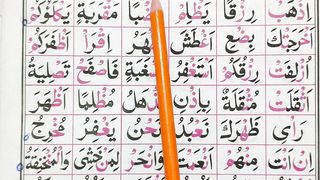 اِذْهَبْ رِزْقًا يَظْلِمُ مَقْرَبَةٍ
اَخْرَجَتْكَ بِضْعِ اَغْطَشَ اِقْرَاْ اَظْفَرَكُمْ
اُزْلِفَتْ رِزْقُكُمْ اسْتَغْفِرْ فَاصْفَحْ تَصْلِيَةُ
اَثْقَلَتْ مُثْقَلَةٌ بِاِذْنِ مُظْلِمًا اَظْهَرَ
رَاْىَ ظَهْرَكَ نَعْبُدُ نَحْنُ يَغْفِرُ مُخْرَجَ
اِنْ اَنْتَ مِنْهُمْ اَنْعَمْتَ وَانْحَرْ لِمَنْ خَشِىَ وَالْمُنْخَنِقَةُ